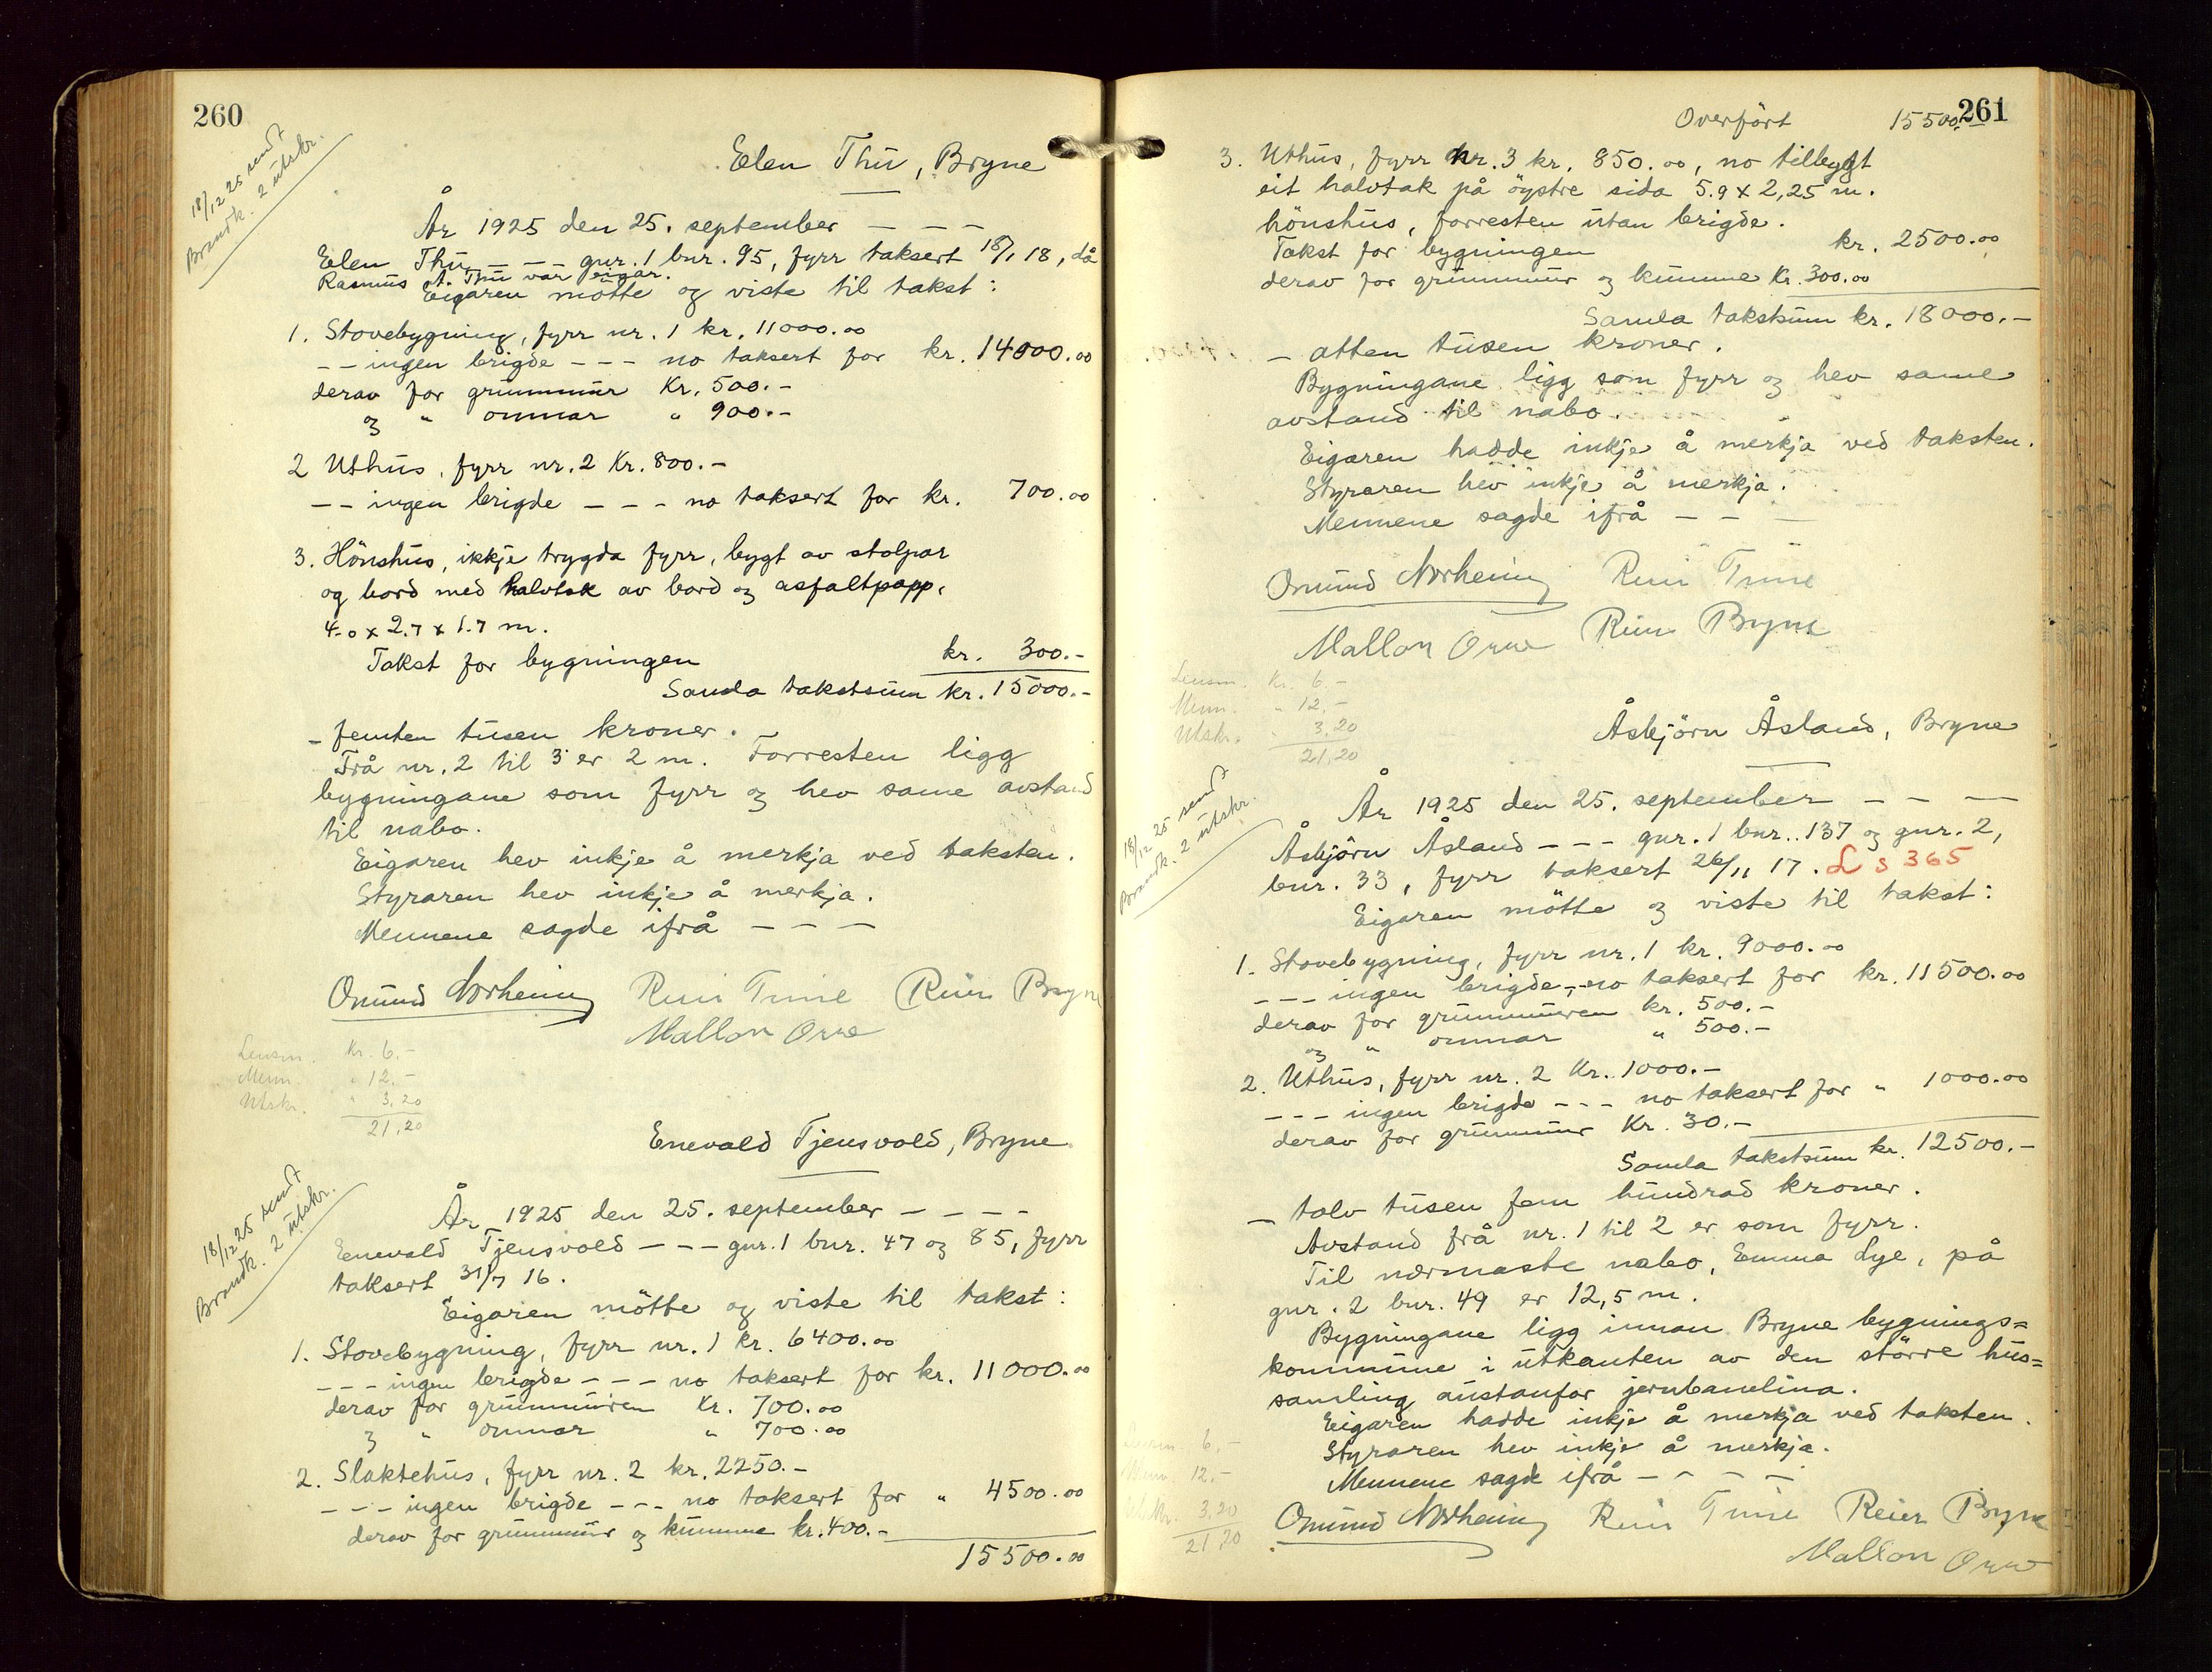 260
18/12 25 sendt
Brandk. 2 utskr.
Elen Thu, Bryne
År 1925 den 25. september – – –
Elen Thu – – gnr. 1 bnr. 95, fyrr taksert 18/1 18, då
Rasmus A. Thu var eigar.
Eigaren møtte og viste til takst:
1. Stovebygning, fyrr nr. 1 kr. 11000.00
– – ingen brigde – – – no taksert for kr. 14000.00
derav for grunnmur Kr. 500.–
og " omnar " 900.–
2 Uthus, fyrr nr. 2 Kr. 800.–
– – ingen brigde – – – no taksert for kr. 700.00
3. Hönshus, ikkje trygda fyrr, bygt av stolpar
og bord med halvtak av bord og asfaltpapp.
4.0 x 2.7 x 1.7 m.
Takst for bygningen kr. 300.–
Samla takstsum kr. 15000.–
– femten tusen kroner.
Frå nr. 2 til 3 er 2 m. Forresten ligg
bygningane som fyrr og hev same avstand
til nabo.
Eigaren hev inkje å merkja ved taksten.
Styraren hev inkje å merkja.
Mennene sagde ifrå – – –
Omund Norheim Reier Time Reier Bryne
Mallon Orre
Lensm. Kr. 6.–
Menn. " 12.–
Utskr. " 3,20
21,20
Enevald Tjensvold, Bryne
18/12 25 sendt
Brandk. 2 utskr.
År 1925 den 25. september – – – –
Enevald Tjensvold – – – gnr. 1 bnr. 47 og 85, fyrr
taksert 31/7 16.
Eigaren mötte og viste til takst:
1. Stovebygning, fyrr nr. 1 kr. 6400.00
– – – ingen brigde – – – no taksert for kr. 11000.00
derav for grunnmuren Kr. 700.00
og " omnar " 700.00
2. Slaktehus, fyrr nr. 2 kr. 2250.–
– – – ingen brigde – – – no taksert for " 4500.00
derav for grunnmur og kumme kr. 400.–
15500.00
261
Overfört 15500.–
3. Uthus, fyrr nr. 3 kr. 850.00, no tilbygt
eit halvtak på öystre sida 5.9 x 2,25 m.
hönshus, forresten utan brigde.
Takst for bygningen kr. 2500.00
derav for grunnmur og kumme Kr. 300.00
Samla takstsum kr. 18000.–
– atten tusen kroner.
Bygningane ligg som fyrr og hev same
avstand til nabo.
Eigaren hadde inkje å merkja ved taksten.
Styraren hev inkje å merkja.
Mennene sagde ifrå – – –
Omund Norheim Reier Time
Mallon Orre Reier Bryne
Lensm. Kr. 6.–
Menn. " 12.–
Utskr. " 3,20
21,20
Åsbjörn Åsland, Bryne
18/12 25 sendt
Brandk. 2 utskr.
År 1925 den 25. september – – –
Åsbjörn Åsland – – – gnr. 1 bnr. 137 og gnr. 2,
bnr. 33, fyrr taksert 26/11 17. L s 365
Eigaren mötte og viste til takst:
1. Stovebygning, fyrr nr. 1 kr. 9000.00
– – – ingen brigde – – no taksert for kr. 11500.00
derav for grunnmuren kr. 500.–
og " omnar " 500.–
2. Uthus, fyrr nr. 2 Kr. 1000.–
– – – ingen brigde – – – no taksert for " 1000.00
derav for grunnmur Kr. 30.–
Samla takstsum kr. 12500.–
– tolv tusen fem hundrad kroner.
Avstand frå nr. 1 til 2 er som fyrr.
Til nærmaste nabo, Emma Lye, på
gnr. 2 bnr. 49 er 12,5 m.
Bygningane ligg innan Bryne bygnings=
kommune i utkanten av den större hus=
samling austanfor jernbanelina.
Eigaren hadde inkje å merkja ved taksten.
Styraren hev inkje å merkja.
Mennene sagde ifrå – – – –
6,–
12.–
3,20
21,20
Omund Norheim Reier Time Reier Bryne
Mallon Orre